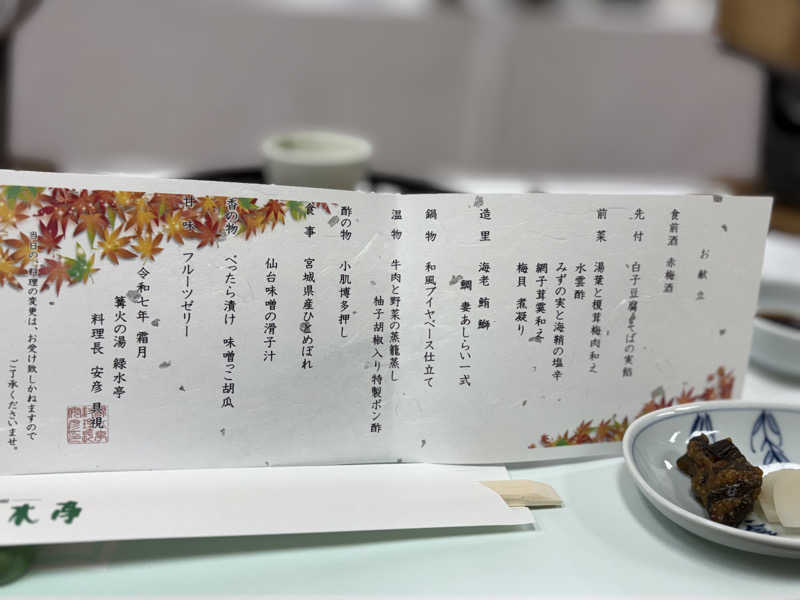 お献立
食前酒 赤梅酒
先付 白子豆腐 そばの実餡
前菜 湯葉と榎茸梅肉和え
水雲酢
みずの実と海鞘の塩辛
網子茸霙和え
梅貝 煮凝り
造里 海老 鮪 鰤
鯛 妻あしらい一式
鍋物 和風ブイヤベース仕立て
温物 牛肉と野菜の蒸籠蒸し
柚子胡椒入り特製ポン酢
酢の物 小肌博多押し
食事 宮城県産ひとめぼれ
仙台味噌の滑子汁
香の物 べったら漬け 味噌っこ胡瓜
甘味 フルーツゼリー
令和七年 霜月
篝火の湯 緑水亭
料理長 安彦 具視
当日の、お料理の変更は、お受け致しかねますので
ご了承くださいませ。
水亭